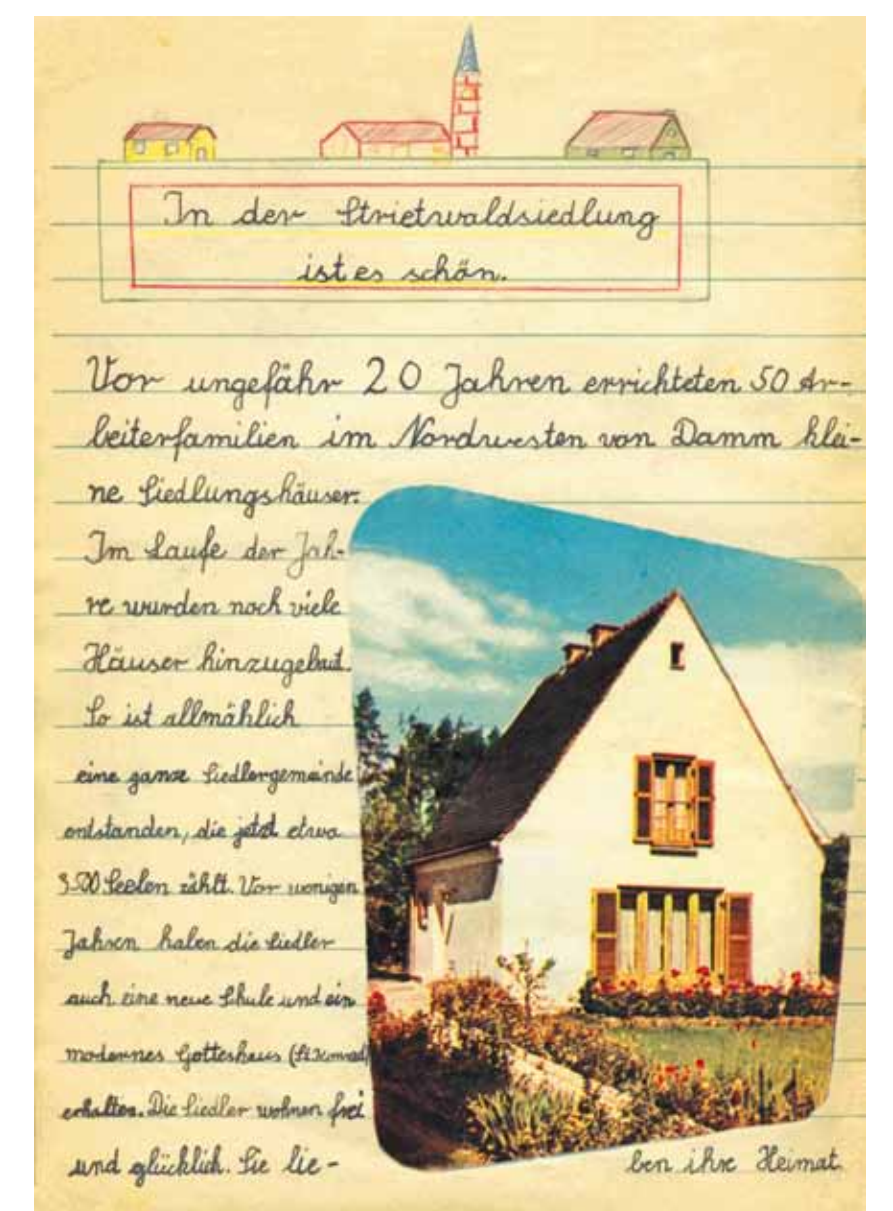 In der Strietwaldsiedlung
ist es schön.
Vor ungefähr 20 Jahren errichteten 50 Ar-
beiterfamilien im Nordwesten von Damm klei-
ne Siedlungshäuser.
Im Laufe der Jah-
re wurden noch viele
Häuser hinzugebaut.
So ist allmählich
eine ganze Siedlergemeinde
entstanden, die jetzt etwa
Seelen zählt. Vor wenigen
Jahren haben die Siedler
auch eine neue Schule und ein
modernes Gotteshaus (St. Konrad)
erhalten. Die Siedler wohnen frei
und glücklich. Sie lie- ben ihre Heimat.